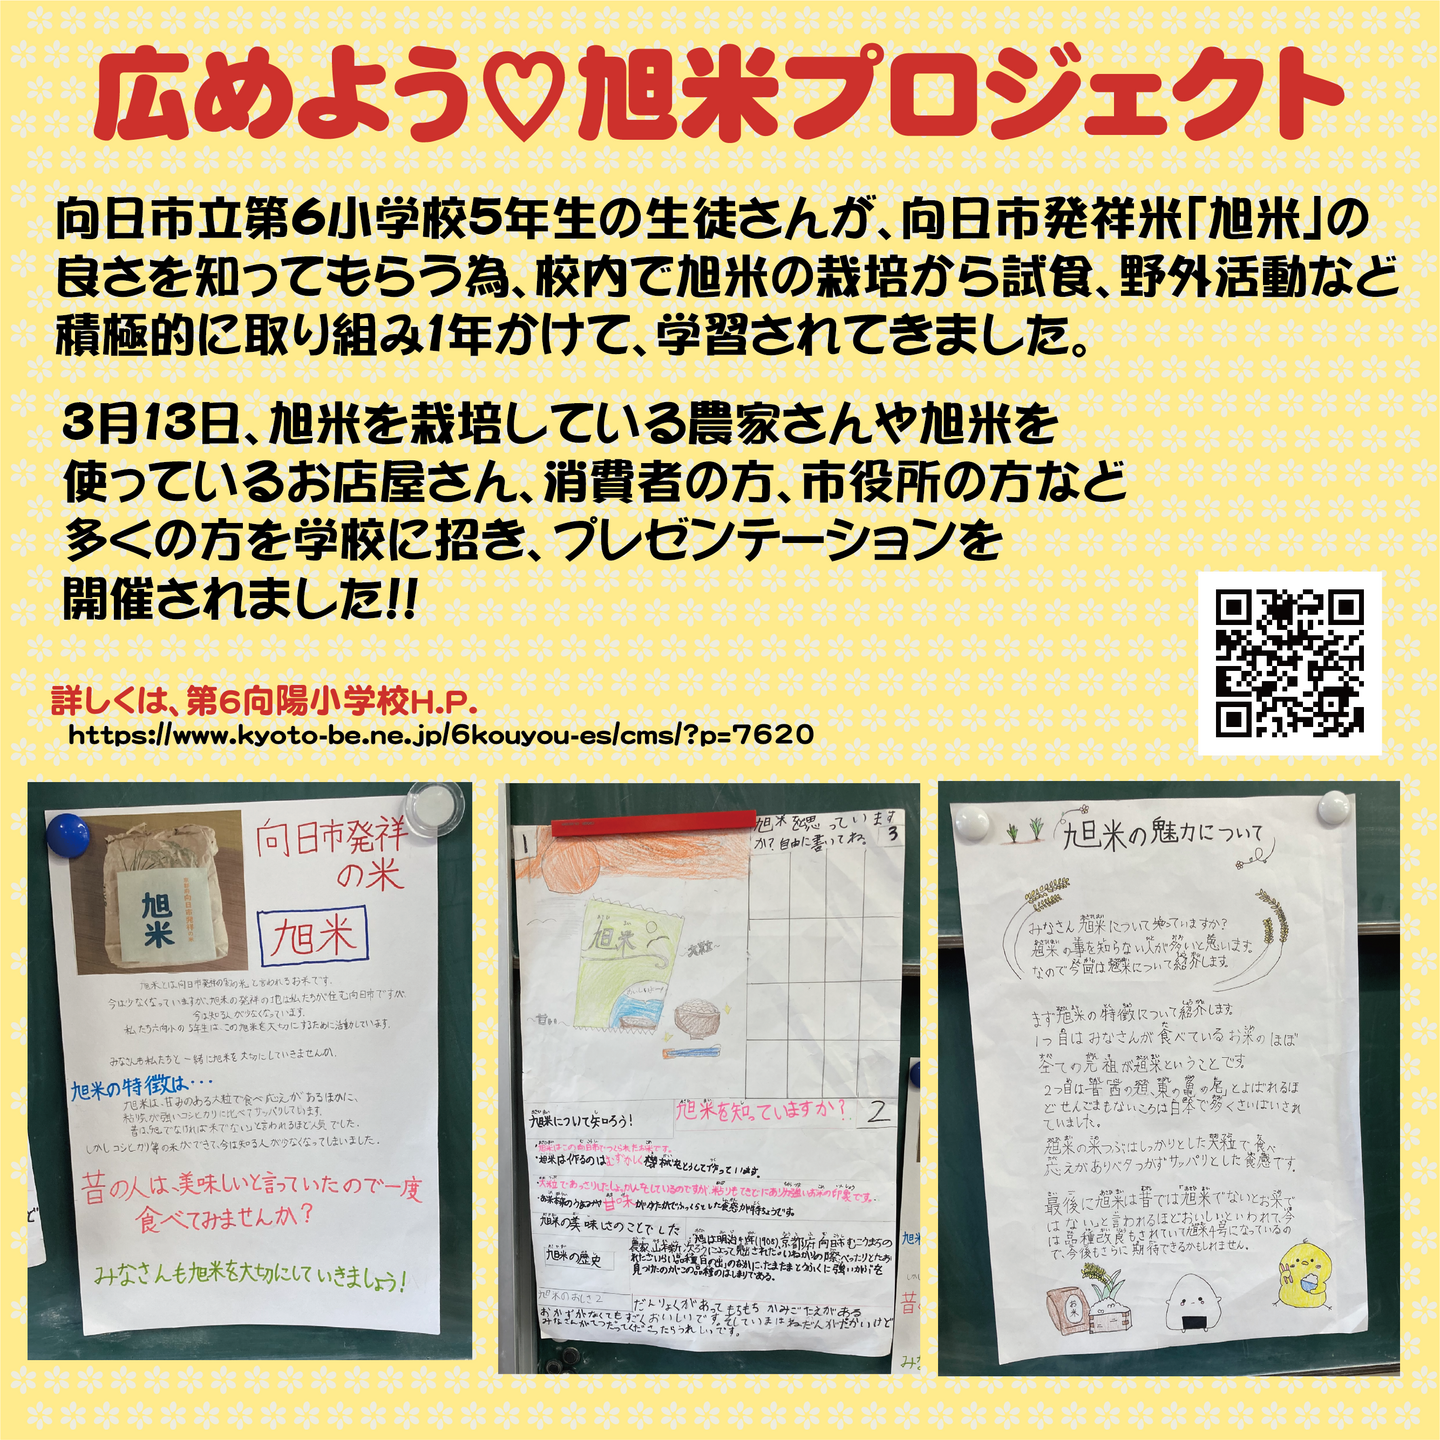 広めよう♡旭米プロジェクト
向日市立第6小学校5年生の生徒さんが、向日市発祥米「旭米」の
良さを知ってもらう為、校内で旭米の栽培から試食、野外活動など
積極的に取り組み1年かけて、学習されてきました。
3月13日、旭米を栽培している農家さんや旭米を
使っているお店屋さん、消費者の方、市役所の方など
多くの方を学校に招き、プレゼンテーションを
開催されました!!
詳しくは、第6向陽小学校H.P.
https://www.kyoto-be.ne.jp/6kouyou-es/cms/?p=7620
向日市発祥
の米
旭米
旭米
旭米とは向日市発祥の
と言われるお米です。
今は少なくなっていますが、旭米の発祥の地は私たちが住む向日市ですが
今は知る人が少なくなっています。
私たち六向小の5年生は、この旭米を大切にするために活動しています。
みなさんも私たちと一緒に旭米を大切にしていきませんか。
旭米の特徴は・・・
旭米は、甘みのある大粒で食べ応えがあるほかに、
粘りが強いコシヒカリに比べてサッパリしています。
昔は、旭でなければ米でないと言われるほど人気でした。
しかしコシヒカリ等の米ができて、今は知る人が少なくなってしまいました。
昔の人は、美味しいと言っていたので一度
食べてみませんか?
みなさんも旭米を大切にしていきましょう!
1
旭米を思っています
か?自由に書いてね。
3
旭米
大粒
甘い
旭米について知ろう!
旭米を知っていますか?
2
・旭米はこの向日市でつくられたお米です。
・旭米は作るのはむずかしく機械化どうしで作っています。
旭米の美味しさのことでした
旭米の歴史
旭米のおしさ2
だんりょくがあってもちもちかみごたえがある
おかずがなくてもすごくおいしいです。そしていまはねだんがたかいけど
みなさんがてつだってくださったらうれしいです。
旭米の魅力について
みなさん旭米について知っていますか?
旭米の事を知らない人が多いと思います。
なので今回は旭米について紹介します。
まず旭米の特徴について紹介します。
1つ目はみなさんが食べているお米のほぼ
全ての元祖が旭米ということです。
2つ目は昔西の旭、東の亀の尾とよばれるほ
どせんごまもないころは日本で多くさいばいされ
ていました。
旭米の米つぶはしっかりとした大粒で食べ
応えがありベタつかずサッパリとした食感です。
最後に旭米は昔では「旭米でないとお米で
はない」と言われるほどおいしいといわれて、今
は品種改良もされていて旭米4号になっているの
で、今後もさらに期待できるかもしれません。
お米